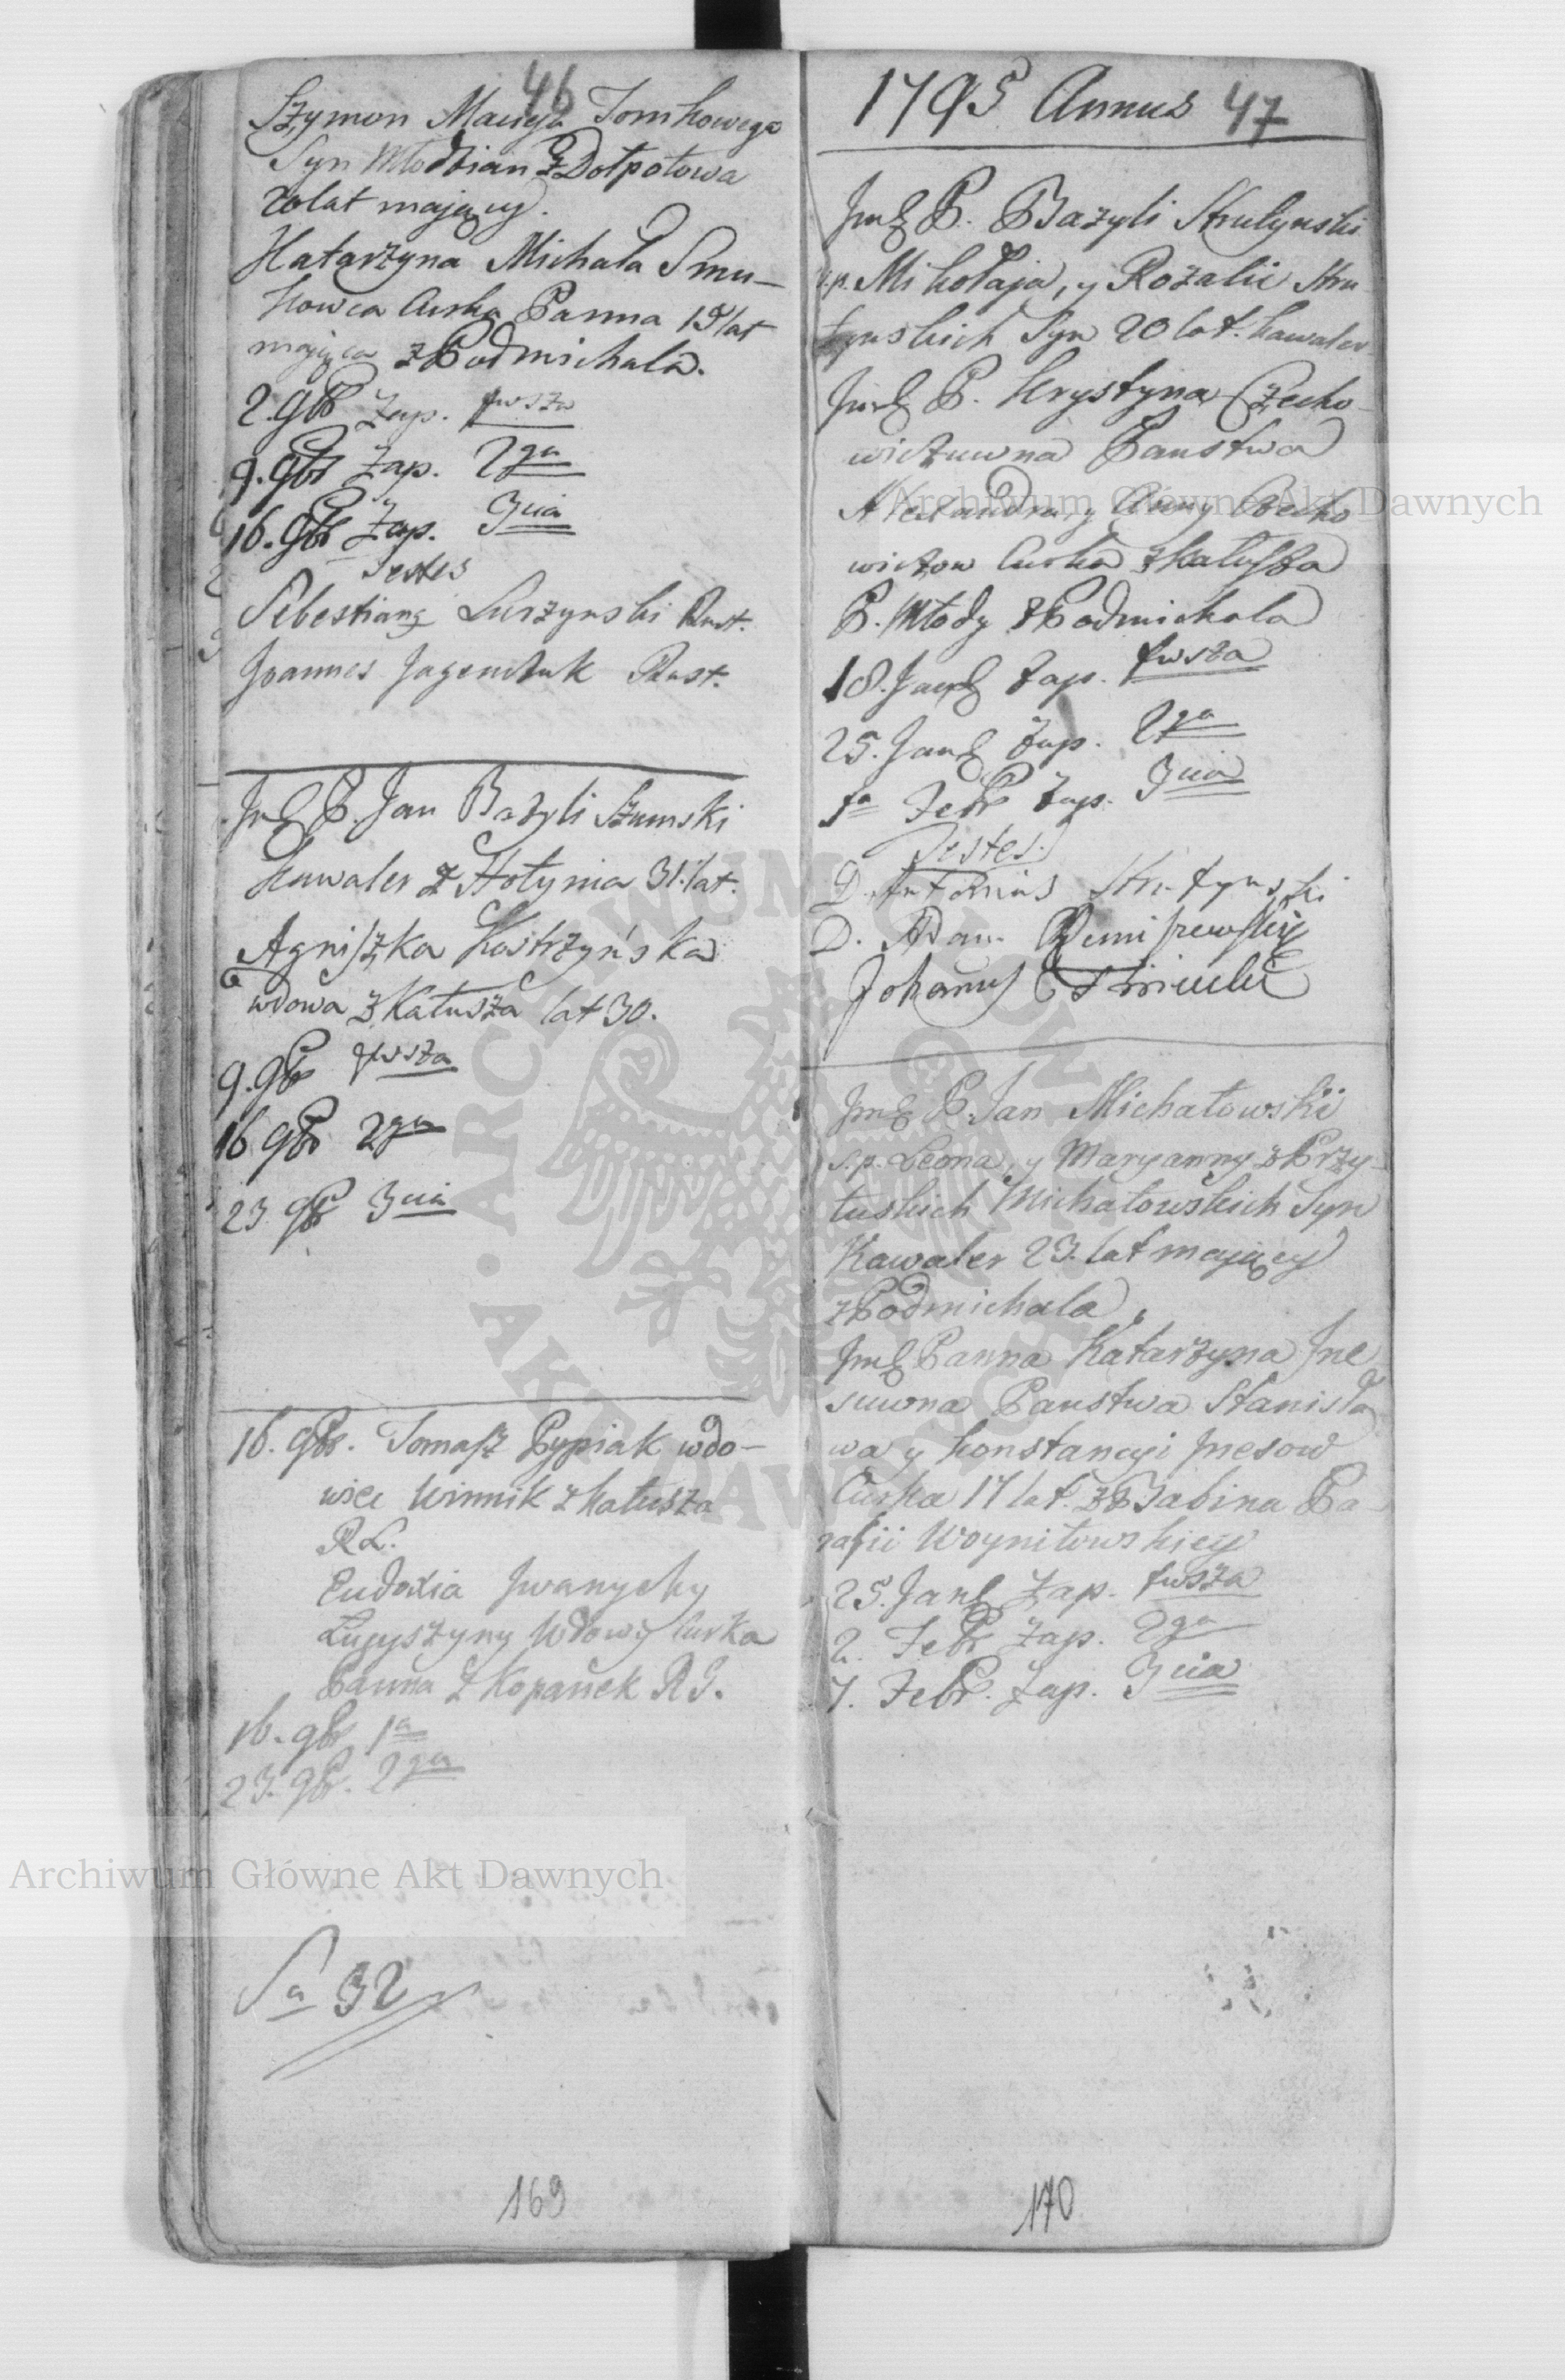 46
Szymon Macieja Tomkowego
Syn Młodzian z Dołpotowa
20 lat mający.
Katarzyna Michała Smu-
kowca Curka Panna 19 lat
mająca z Podmichala.
2. 9br Zap. 1wsza
9. 9br Zap. 2ga
16. 9br Zap. 3cia
Testes
Sebestiang Surzynski Rust.
Joannes Jagenczuk Rust.
Jmć P. Jan Bazyli Szumski
Kawaler z Hołynia 31. lat.
Agniszka Kostrzyńska
wdowa z Kałusza lat 30.
9. 9br 1wsza
16 9br 2ga
23 9br 3cia
16. 9br. Tomasz Pypiak wdo-
wiec Winnik z Kałusza
R L.
Eudoxia Jwanychy
Wdowy Curka
Panna z Kopanek R G.
16. 9br 1a
23. 9br. 2ga
Sa 32
169
1795 Annus 47
Jmć P. Bazyli Strutynski
s.p. Mikołaja, y Rozalii Stru-
tynskich Syn 20 lat. kawaler
Jmć P. Krystyna Czecho-
wiczuwna Panstwa
Alexandra y Anny Czecho
wiczow Curka z Kałusza
P. Młody z Podmichala
18. Janr Zap. 1wsza
25. Janr Zap. 2ga
1a Febr Zap. 3cia
Testes.
D. Antonius Strutynski
D. Adam
Johannes
Jmć P. Jan Michałowskii
s.p. Leona, y Maryanny z Przy-
łuskich Michałowskich Syn
Kawaler 23. lat mający
z Podmichala,
Jmć Panna Katarzyna Jne
suwna Panstwa Stanisła
wa y Konstancyi Jnesow
Curka 17 lat. z Babina Pa-
rafii Woyniłowskiey
25. Janr Zap. 1wsza
2. Febr Zap. 2ga
7. Febr. Zap. 3cia
170
Archiwum Główne Akt Dawnych
Archiwum Główne Akt Dawnych
ARCHIWUM GŁÓWNE AKT DAWNYCH